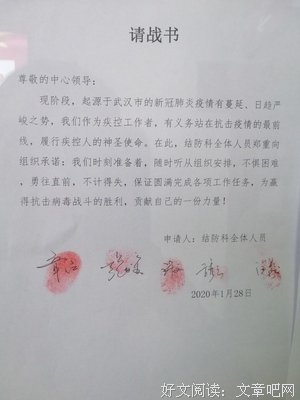 请战书
尊敬的中心领导：
现阶段，起源于武汉市的新冠肺炎疫情有蔓延、日趋严
峻之势，我们作为疾控工作者，有义务站在抗击疫情的最前
线，履行疾控人的神圣使命。在此，结防科全体人员郑重向
组织承诺：我们时刻准备着，随时听从组织安排，不惧困难
，勇往直前，不计得失，保证圆满完成各项工作任务，为赢
得抗击病毒战斗的胜利，贡献自己的一份力量！
申请人：结防科全体人员
2020年1月28日
好文阅读：文章吧网